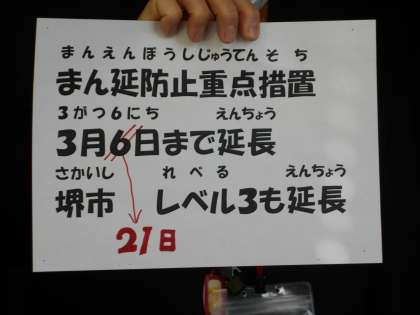 まんえんぼうしじゅうてんそち
まん延防止重点措置
3がつ6にち えんちょう
3月6日まで延長
さかいし れべる えんちょう
堺市 レベル3も延長
21日